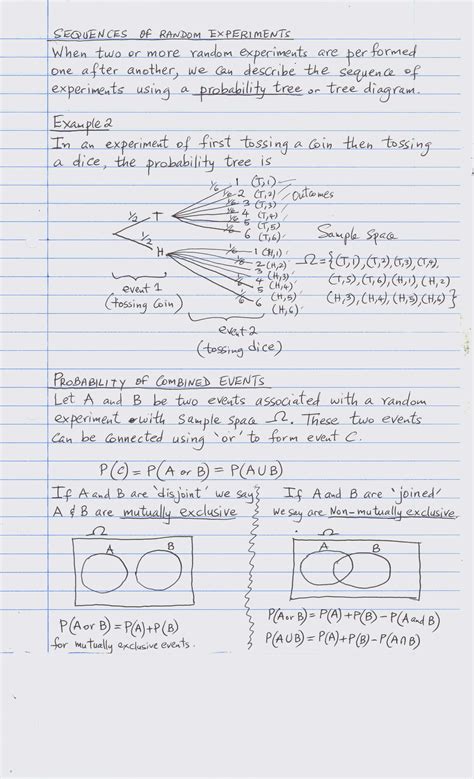 SEQUENCES OF RANDOM EXPERIMENTS
When two or more random experiments are performed
one after another, we can describe the sequence of
experiments using a probability tree or tree diagram.
Example 2
In an experiment of first tossing a coin then tossing
a dice, the probability tree is
1/6 1 (T,1)
1/6 2 (T,2) Outcomes
1/6 3 (T,3)
1/6 4 (T,4)
1/6 5 (T,5)
6 (T,6)
1/2 T
1/2 H
1/6 1 (H,1)
2 (H,2)
3 (H,3)
4 (H,4)
5 (H,5)
1/6 6 (H,6)
Sample Space
Ω={(T,1),(T,2),(T,3),(T,4),
(T,5),(T,6),(H,1),(H,2)
(H,3),(H,4),(H,5),(H,6)}
event 1
(tossing coin)
event 2
(tossing dice)
PROBABILITY OF COMBINED EVENTS
Let A and B be two events associated with a random
experiment with sample space Ω. These two events
can be connected using 'or' to form event C.
P(C) = P(A or B) = P(A∪B)
If A and B are 'disjoint' we say
A & B are mutually exclusive
Ω
A B
P(A or B) = P(A)+P(B)
for mutually exclusive events.
If A and B are 'joined'
we say are Non-mutually exclusive
Ω
A B
P(A or B) = P(A)+P(B)-P(A and B)
P(A∪B) = P(A)+P(B)-P(A∩B)